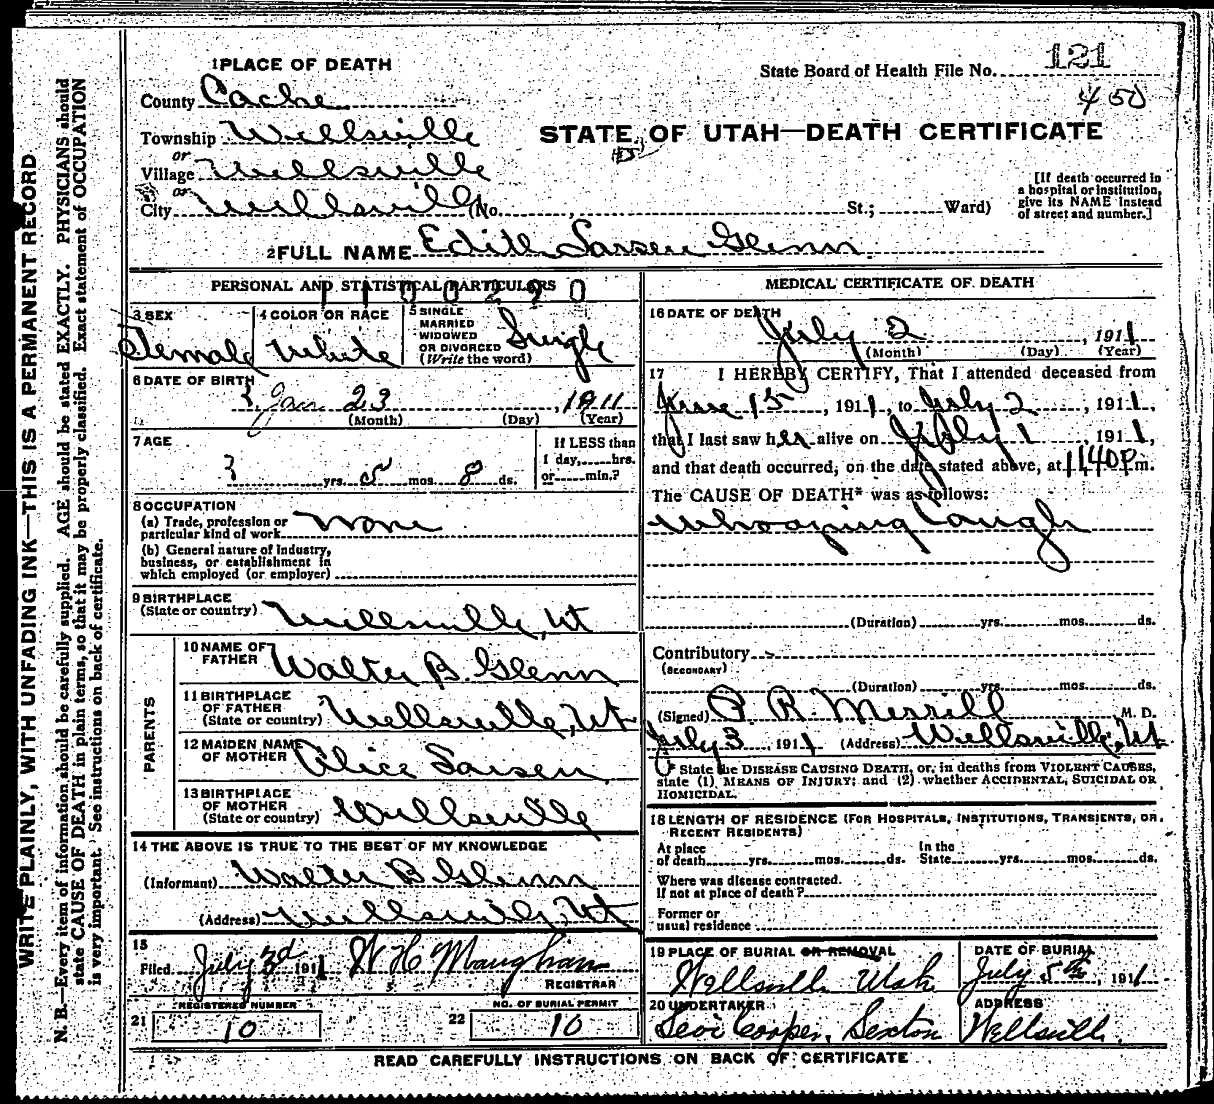 WRITE PLAINLY, WITH UNFADING INK—THIS IS A PERMANENT RECORD
N. B.—Every item of information should be carefully supplied. AGE should be stated EXACTLY. PHYSICIANS should
state CAUSE OF DEATH in plain terms, so that it may be properly classified. Exact statement of OCCUPATION
is very important. See instructions on back of certificate.
1 PLACE OF DEATH
State Board of Health File No. 121
450
County Cache
Township Wellsville
STATE OF UTAH—DEATH CERTIFICATE
or
Village Wellsville
or
City Wellsville (No. , St.; Ward)
[If death occurred in
a hospital or institution,
give its NAME instead
of street and number.]
2 FULL NAME Edith Larsen Glenn
PERSONAL AND STATISTICAL PARTICULARS
1100290
3 SEX
Female
4 COLOR OR RACE
White
5 SINGLE
MARRIED
WIDOWED
OR DIVORCED
(Write the word)
Single
6 DATE OF BIRTH
Jan 23, 1911
(Month) (Day) (Year)
7 AGE
yrs. 5 mos. 8 ds.
If LESS than
1 day, hrs.
or min.?
8 OCCUPATION
(a) Trade, profession or
particular kind of work None
(b) General nature of industry,
business, or establishment in
which employed (or employer)
9 BIRTHPLACE
(State or country) Wellsville, Ut
PARENTS
10 NAME OF
FATHER Walter B. Glenn
11 BIRTHPLACE
OF FATHER
(State or country) Wellsville, Ut
12 MAIDEN NAME
OF MOTHER Alice Larsen
13 BIRTHPLACE
OF MOTHER
(State or country) Wellsville
14 THE ABOVE IS TRUE TO THE BEST OF MY KNOWLEDGE
(Informant) Walter B Glenn
(Address) Wellsville, Ut
15
Filed July 3d 1911 W H Maughan
REGISTRAR
REGISTERED NUMBER
21 10
NO. OF BURIAL PERMIT
22 10
MEDICAL CERTIFICATE OF DEATH
16 DATE OF DEATH
July 2, 1911
(Month) (Day) (Year)
17 I HEREBY CERTIFY, That I attended deceased from
June 15, 1911, to July 2, 1911,
that I last saw her alive on July 1, 1911,
and that death occurred, on the date stated above, at 1140P m.
The CAUSE OF DEATH* was as follows:
Whooping Cough
(Duration) yrs. mos. ds.
Contributory
(SECONDARY)
(Duration) yrs. mos. ds.
(Signed) P. R. Merrill M. D.
July 3 1911 (Address) Wellsville, Ut
* State the DISEASE CAUSING DEATH, or, in deaths from VIOLENT CAUSES,
state (1) MEANS OF INJURY; and (2) whether ACCIDENTAL, SUICIDAL OR
HOMICIDAL.
18 LENGTH OF RESIDENCE (FOR HOSPITALS, INSTITUTIONS, TRANSIENTS, OR
RECENT RESIDENTS)
At place
of death yrs. mos. ds.
In the
State yrs. mos. ds.
Where was disease contracted.
If not at place of death?
Former or
usual residence
19 PLACE OF BURIAL OR REMOVAL
Wellsville Utah
DATE OF BURIAL
July 5th, 1911
20 UNDERTAKER
Levi Cooper, Sexton
ADDRESS
Wellsville.
READ CAREFULLY INSTRUCTIONS ON BACK OF CERTIFICATE